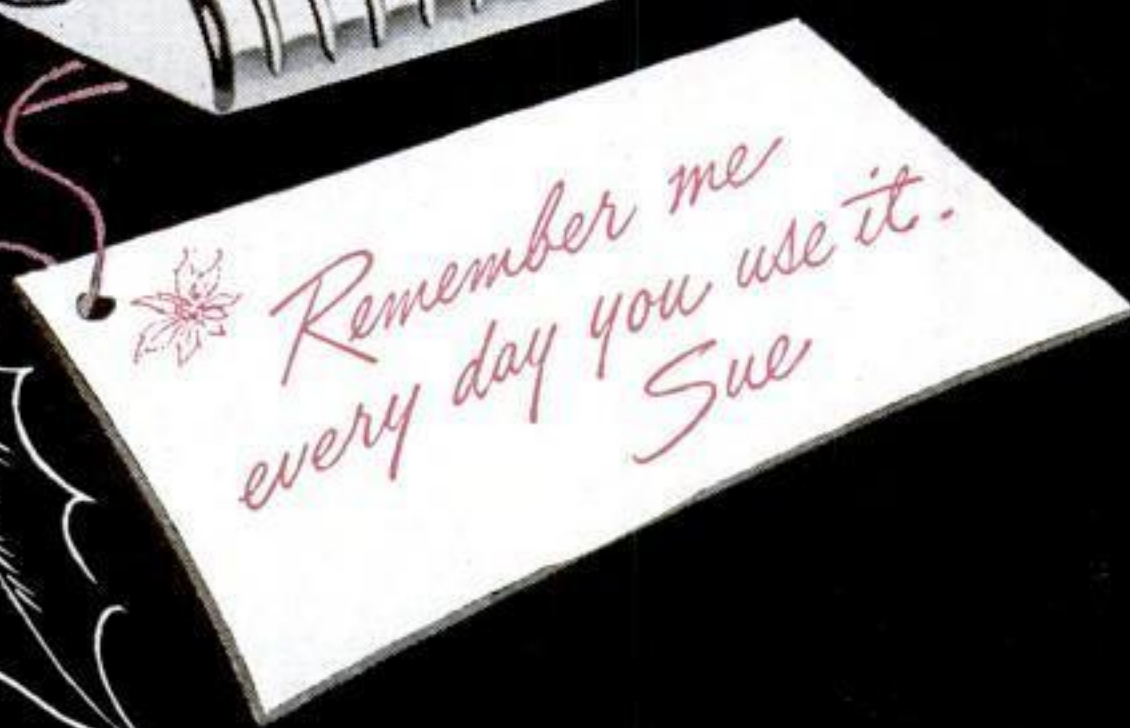 Remember me
every day you use it.
Sue